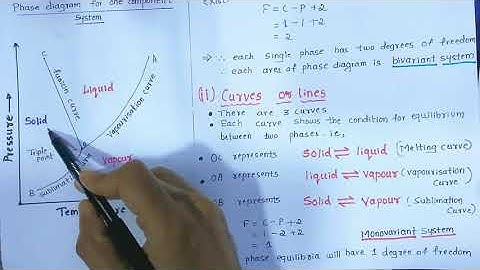 Phase diagram for one component
System
C
A
fusion curve
Liquid
Vapourisation curve
Solid
Triple
point
Vapour
B
Sublimation
Pressure
Tem
F = C-P+2
= 1-1+2
= 2
⇒ ∴ each single phase has two degrees of freedom
∴ each area of phase diagram is bivariant system
(ii) Curves or lines
• There are 3 curves
• Each curve shows the condition for equilibrium
between two phases. i.e,
• OC represents Solid ⇌ liquid (Melting curve)
• OA represents liquid ⇌ Vapour (vapourisation
curve)
OB represents Solid ⇌ Vapour (Sublimation
Curve)
F = C-P+2
= 1-2+2
= 1
Monovariant System
phase equilibria will have 1 degree of freedom